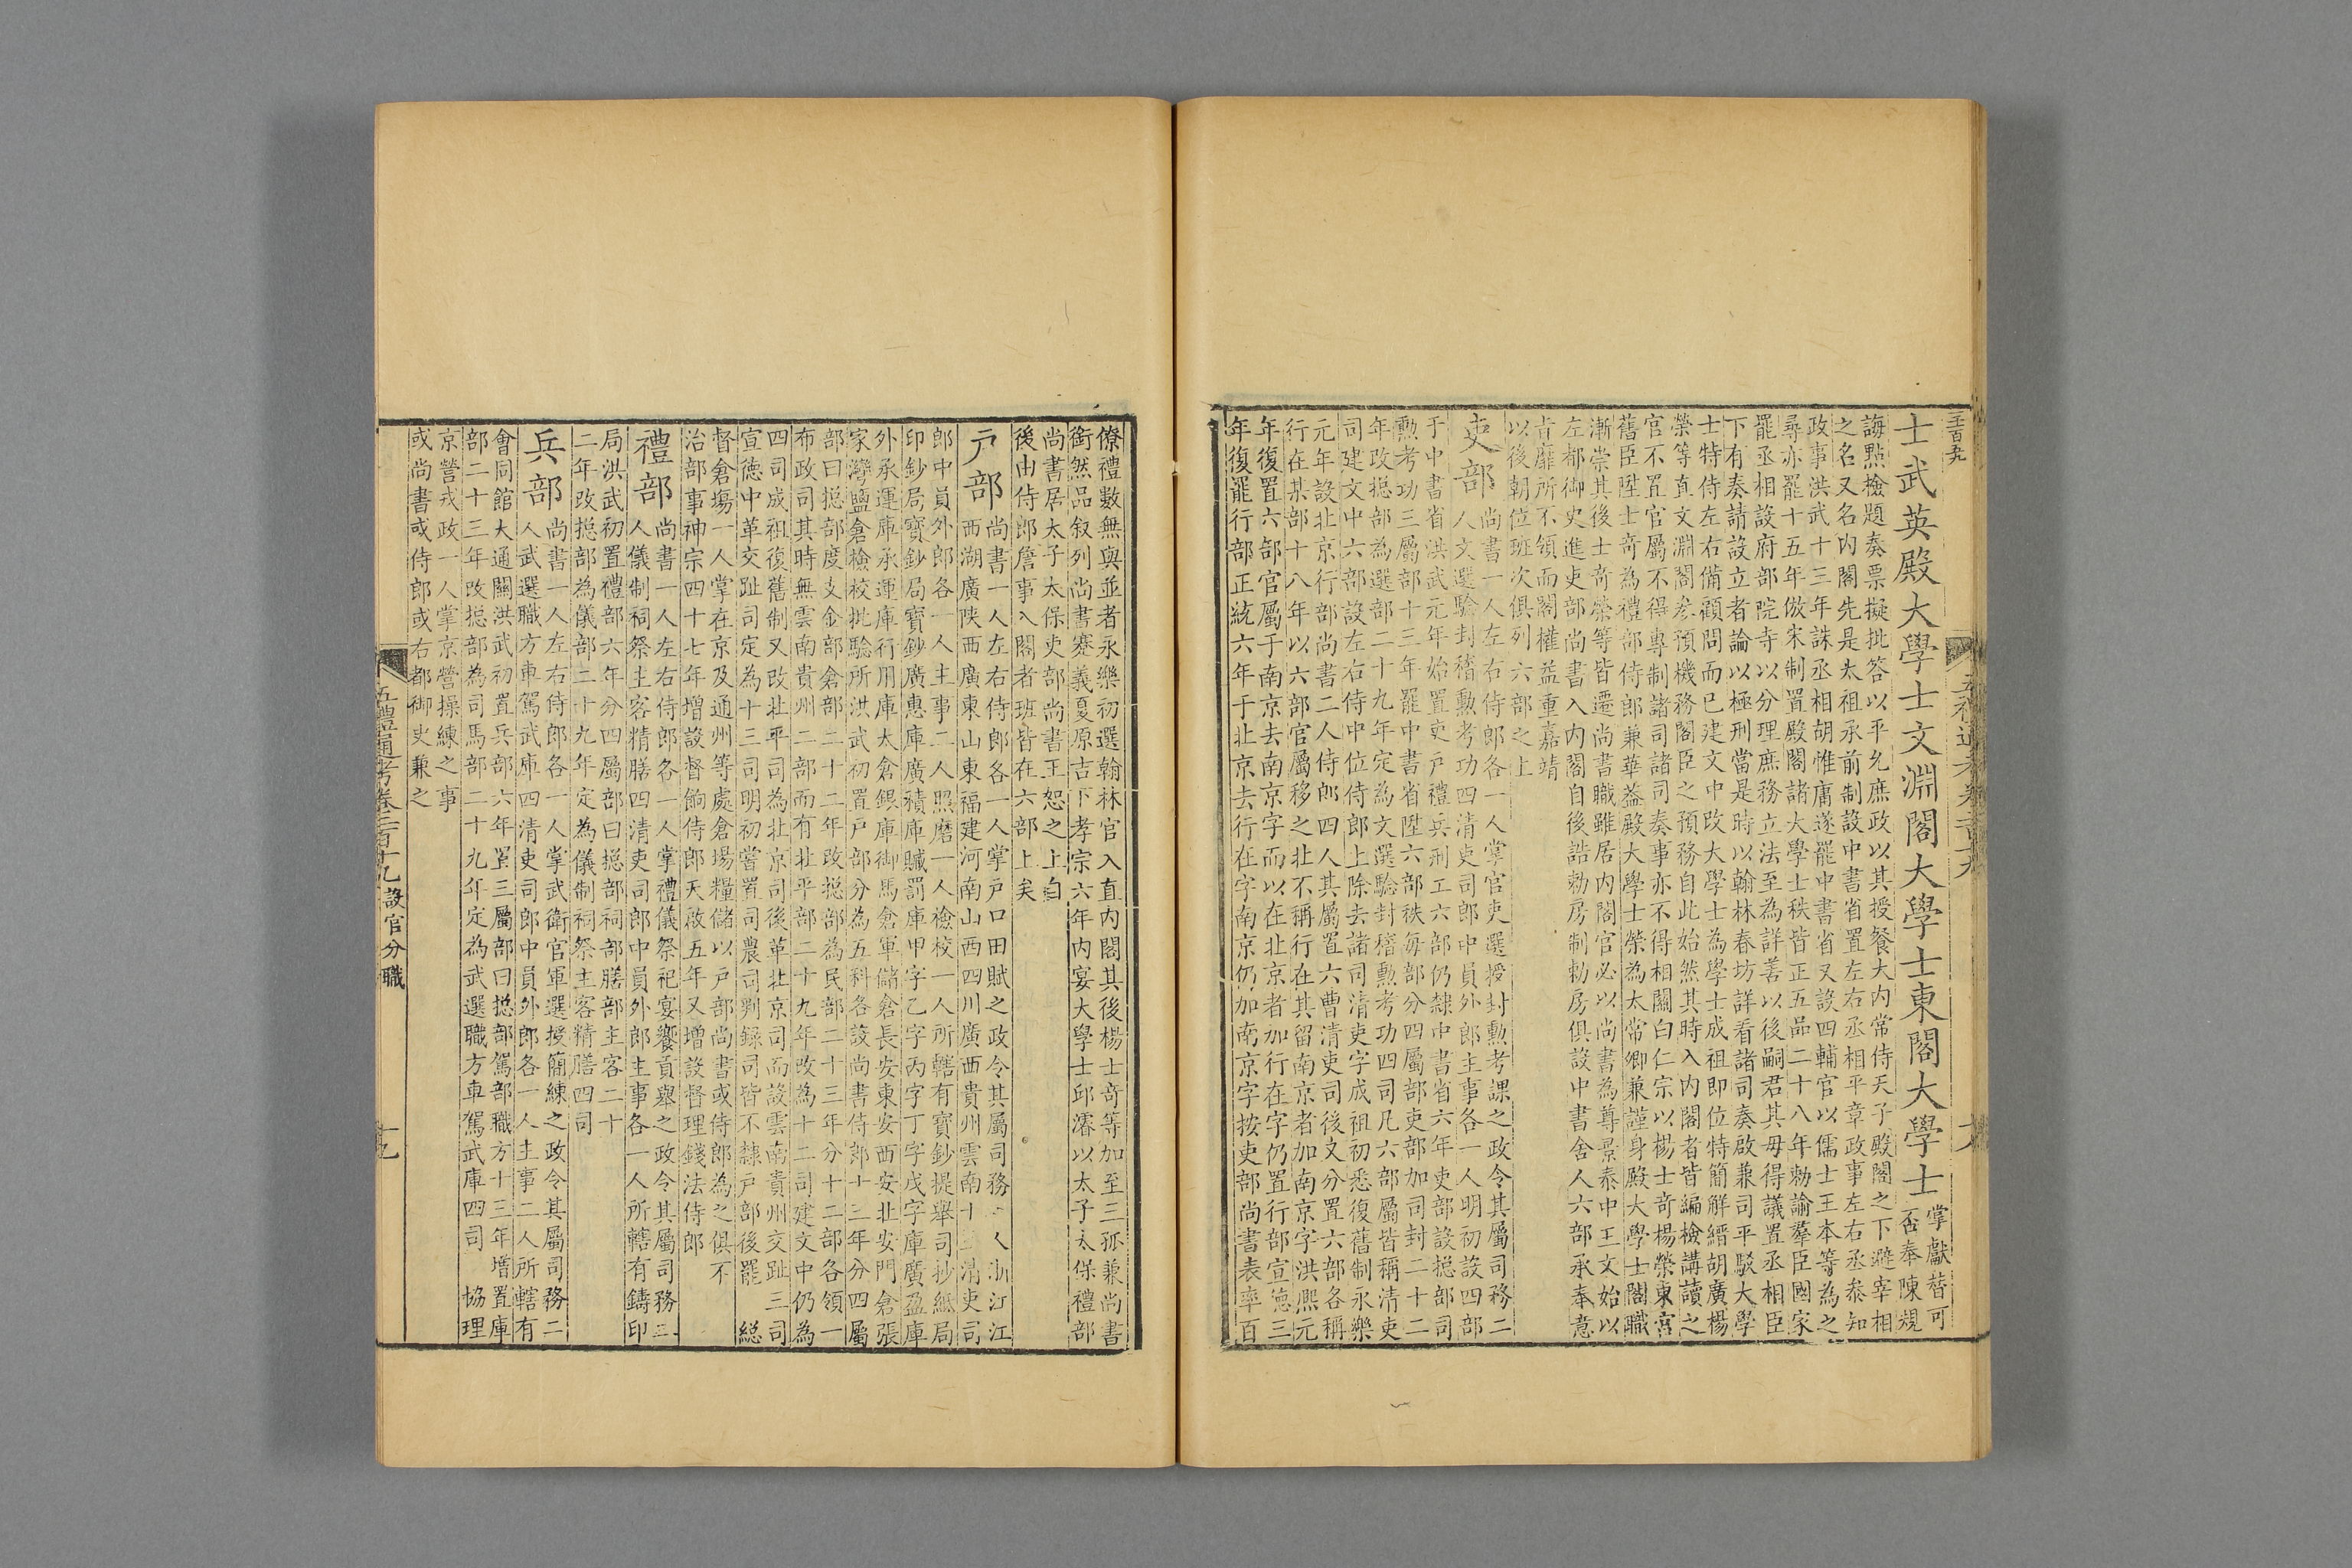 士武英殿大學士文淵閣大學士東閣大學士
掌獻替可
否奉陳規
誨點檢題奏票擬批答以平允庶政以其授餐大内常侍天子殿閣之下避宰相
之名又名内閣先是太祖承前制設中書省置左右丞相平章政事左右丞叅知
政事洪武十三年誅丞相胡惟庸遂罷中書省又設四輔官以儒士王本等為之
尋亦罷十五年倣宋制置殿閣諸大學士秩皆正五品二十八年勅諭羣臣國家
罷丞相設府部院寺以分理庶務立法至為詳善以後嗣君其毋得議置丞相臣
下有奏請設立者論以極刑當是時以翰林春坊詳看諸司奏啟兼司平駁大學
士特侍左右備顧問而已建文中改大學士為學士成祖即位特簡解縉胡廣楊
榮等直文淵閣叅預機務閣臣之預務自此始然其時入内閣者皆編檢講讀之
官不置官屬不得專制諸司諸司奏事亦不得相關白仁宗以楊士奇楊榮東宮
舊臣陞士奇為禮部侍郎兼華葢殿大學士榮為太常卿兼謹身殿大學士閣職
漸崇其後士奇榮等皆遷尚書職雖居内閣官必以尚書為尊景泰中王文始以
左都御史進吏部尚書入内閣自後誥勅房制勅房俱設中書舍人六部承奉意
㫖靡所不領而閣權益重嘉靖
以後朝位班次俱列六部之上
吏部
尚書一人左右侍郎各一人掌官吏選授封勲考課之政令其屬司務二
人文選驗封稽勲考功四清吏司郎中員外郎主事各一人明初設四部
于中書省洪武元年始置吏戶禮兵刑工六部仍隸中書省六年吏部設揔部司
勲考功三屬部十三年罷中書省陞六部秩毎部分四屬部吏部加司封二十二
年改揔部為選部二十九年定為文選驗封稽勲考功四司凡六部屬皆稱清吏
司建文中六部設左右侍中位侍郎上除去諸司清吏字成祖初悉復舊制永樂
元年設北京行部尚書二人侍郎四人其屬置六曹清吏司後又分置六部各稱
行在某部十八年以六部官屬移之北不稱行在其留南京者加南京字洪熙元
年復置六部官屬于南京去南京字而以在北京者加行在字仍置行部宣德三
年復罷行部正統六年于北京去行在字南京仍加南京字按吏部尚書表率百
僚禮數無與並者永樂初選翰林官入直内閣其後楊士奇等加至三孤兼尚書
銜然品叙列尚書蹇義夏原吉下孝宗六年内宴大學士邱濬以太子太保禮部
尚書居太子太保吏部尚書王恕之上自
後由侍郎詹事入閣者班皆在六部上矣
戸部
尚書一人左右侍郎各一人掌戸口田賦之政令其屬司務二人浙江江
西湖廣陜西廣東山東福建河南山西四川廣西貴州雲南十三清吏司
郎中員外郎各一人主事二人照磨一人檢校一人所轄有寶鈔提舉司抄紙局
印鈔局寶鈔局寶鈔廣惠庫廣積庫贓罰庫甲字乙字丙字丁字戊字庫廣盈庫
外承運庫承運庫行用庫太倉銀庫御馬倉軍儲倉長安東安西安北安門倉張
家灣鹽倉檢校批驗所洪武初置戸部分為五科各設尚書侍郎十三年分四屬
部曰揔部度支金部倉部二十二年改揔部為民部二十三年分十二部各領一
布政司其時無雲南貴州二部而有北平部二十九年改為十二司建文中仍為
四司成祖復舊制又改北平司為北京司後革北京司而設雲南貴州交趾三司
宣德中革交趾司定為十三司明初嘗置司農司判録司皆不隸戸部後罷　總
督倉塲一人掌在京及通州等處倉塲糧儲以戸部尚書或侍郎為之俱不
治部事神宗四十七年增設督餉侍郎天啟五年又增設督理錢法侍郎
禮部
尚書一人左右侍郎各一人掌禮儀祭祀宴饗貢舉之政令其屬司務二
人儀制祠祭主客精膳四清吏司郎中員外郎主事各一人所轄有鑄印
局洪武初置禮部六年分四屬部曰揔部祠部膳部主客二十
二年改揔部為儀部二十九年定為儀制祠祭主客精膳四司
兵部
尚書一人左右侍郎各一人掌武衛官軍選授簡練之政令其屬司務二
人武選職方車駕武庫四清吏司郎中員外郎各一人主事二人所轄有
會同館大通關洪武初置兵部六年置三屬部曰揔部駕部職方十三年增置庫
部二十三年改揔部為司馬部二十九年定為武選職方車駕武庫四司　協理
京營戎政一人掌京營操練之事
或尚書或侍郎或右都御史兼之
五禮通考卷二百十九　設官分職